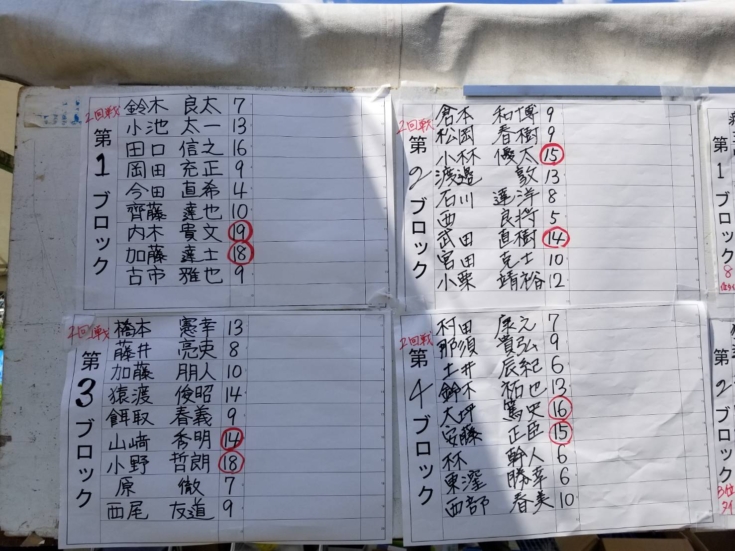 2回戦
第1ブロック
鈴木 良太 7
小池 太一 13
田口 信之 16
岡田 充正 9
今田 直希 4
齊藤 達也 10
内木 貴文 19
加藤 達士 18
古市 雅也 9
2回戦
第2ブロック
倉本 和博 9
松岡 春樹 9
小林 優太 15
渡邉 敦 13
石川 運洋 8
西 良将 5
武田 直樹 14
宮田 克士 10
小栗 靖裕 12
2回戦
第3ブロック
橋本 憲幸 13
藤井 亮吏 8
加藤 朋人 10
猿渡 俊昭 14
餌取 春義 9
山﨑 秀明 14
小野 哲朗 18
原 徹 7
西尾 友道 9
2回戦
第4ブロック
村田 康之 7
那須 貴弘 9
土井 辰紀 6
鈴木 祐也 13
大坪 篤史 16
安藤 正臣 15
林 幹人 6
東窪 勝幸 6
西部 春美 10
第1
8
第2